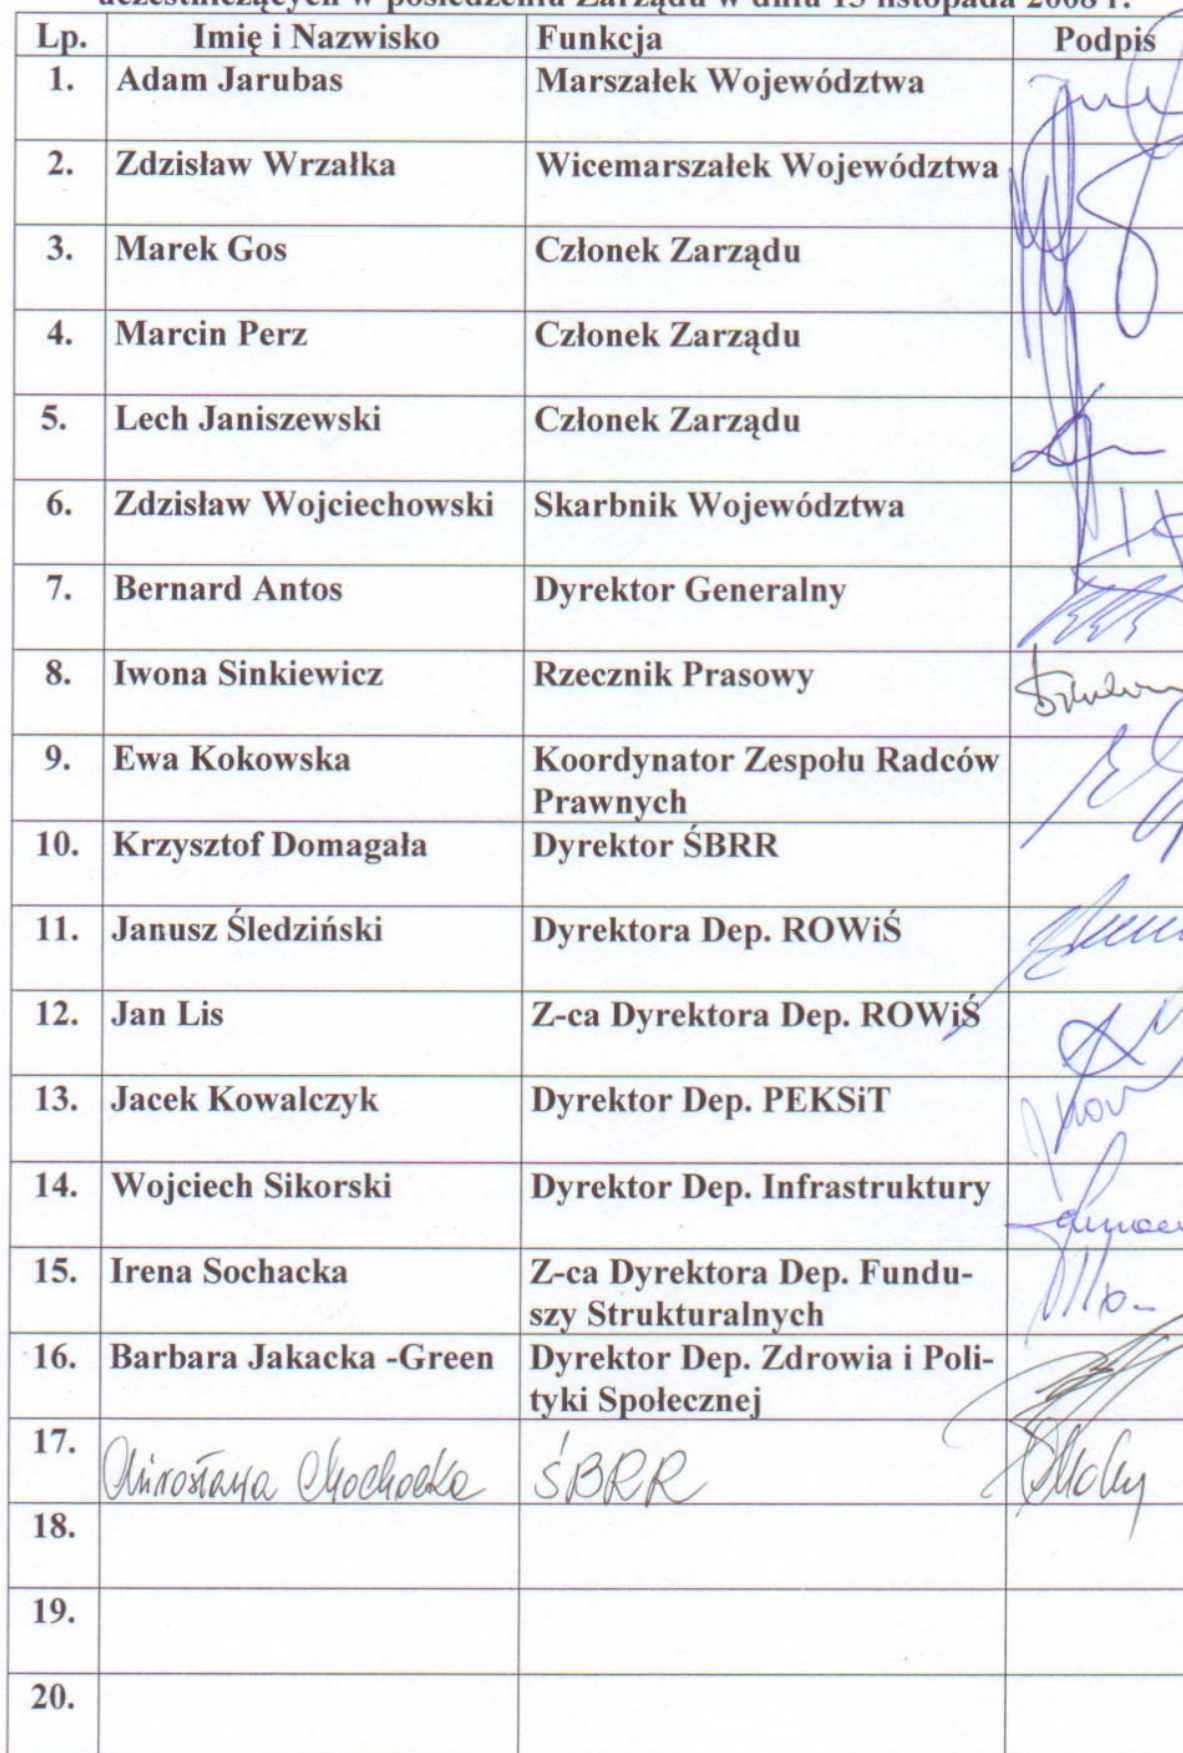 uczestniczących w posiedzeniu Zarządu w dniu 13 listopada 2008 r.
Lp. Imię i Nazwisko Funkcja Podpis
1. Adam Jarubas Marszałek Województwa
2. Zdzisław Wrzałka Wicemarszałek Województwa
3. Marek Gos Członek Zarządu
4. Marcin Perz Członek Zarządu
5. Lech Janiszewski Członek Zarządu
6. Zdzisław Wojciechowski Skarbnik Województwa
7. Bernard Antos Dyrektor Generalny
8. Iwona Sinkiewicz Rzecznik Prasowy
9. Ewa Kokowska Koordynator Zespołu Radców
Prawnych
10. Krzysztof Domagała Dyrektor ŚBRR
11. Janusz Śledziński Dyrektora Dep. ROWiŚ
12. Jan Lis Z-ca Dyrektora Dep. ROWiŚ
13. Jacek Kowalczyk Dyrektor Dep. PEKSiT
14. Wojciech Sikorski Dyrektor Dep. Infrastruktury
15. Irena Sochacka Z-ca Dyrektora Dep. Fundu-
szy Strukturalnych
16. Barbara Jakacka -Green Dyrektor Dep. Zdrowia i Poli-
tyki Społecznej
17. Mirosława Mochocka ŚBRR
18.
19.
20.